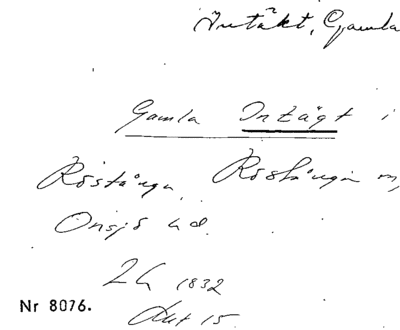 Intäkt, Gamla
Gamla Intägt i
Röstånga, Röstånga m,
Onsjö hd.
1832
Akt 15
Nr 8076.